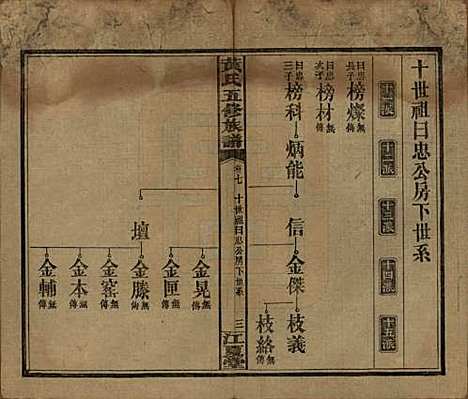 十世祖日忠公房下世系
十一派
十二派
十三派
十四派
十五派
日忠長子
榜燦
無傳
日忠次子
榜材
無傳
日忠三子
榜科
炳能
信
金傑
枝義
枝絡
無傳
黃氏五修族譜
卷七
十世祖日忠公房下世系
三
江夏堂
壇
金晃
無傳
金匣
無傳
金滕
無傳
金窑
無傳
金本
無傳
金輔
無傳